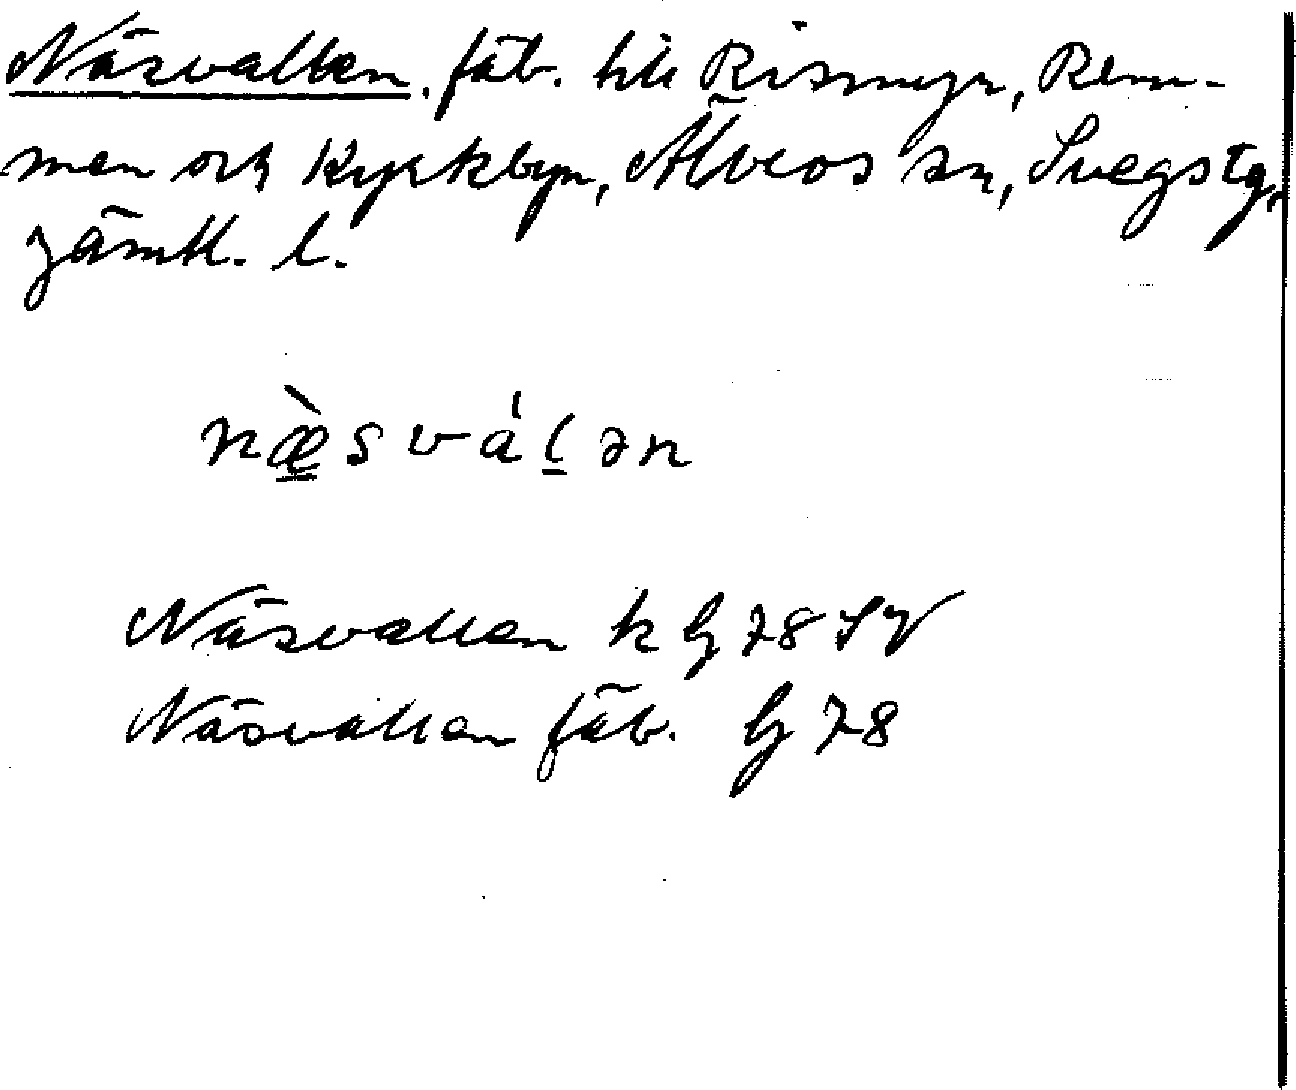 Näsvallen, fäb. till Rismyr, Rem-
men och Kyrkbyn, Älvros sn, Svegs tg,
Jämtl. l.
næ̀sválən
Näsvallen k G 78 SV
Näsvallen fäb. G 78